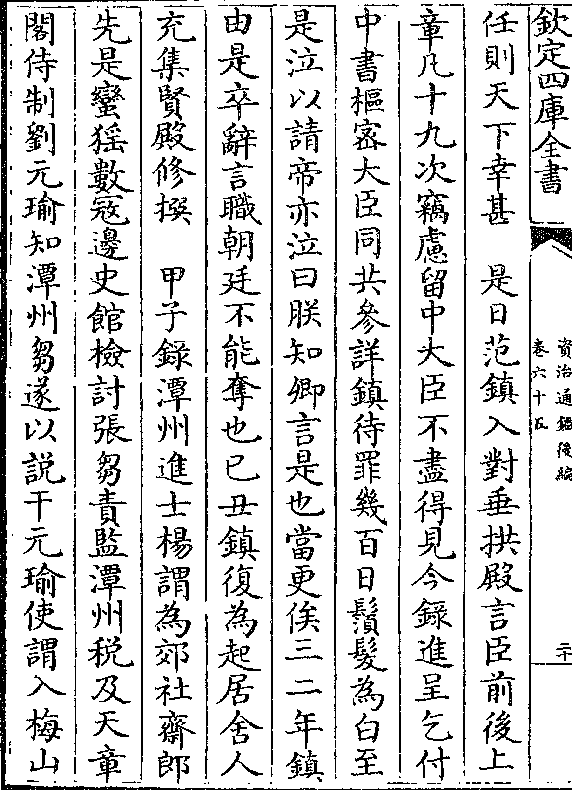 欽定四庫全書
資治通鑑後編
卷六十五
二十
任則天下幸甚　是日范鎮入對垂拱殿言臣前後上
章凡十九次竊慮留中大臣不盡得見今録進呈乞付
中書樞密大臣同共參詳鎮待罪幾百日鬚髮為白至
是泣以請帝亦泣曰朕知卿言是也當更俟三二年鎮
由是卒辭言職朝廷不能奪也已丑鎮復為起居舍人
充集賢殿修撰　甲子錄潭州進士楊謂為郊社齋郎
先是蠻猺數冦邊史館檢討張芻責監潭州税及天章
閣侍制劉元瑜知潭州芻遂以説干元瑜使謂入梅山